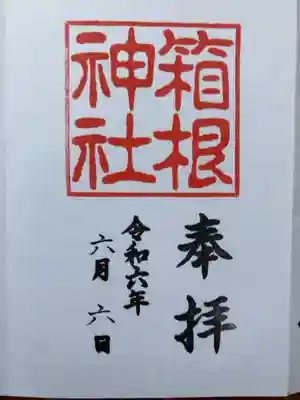 箱根
神社
奉拝
令和六年
六月 六日